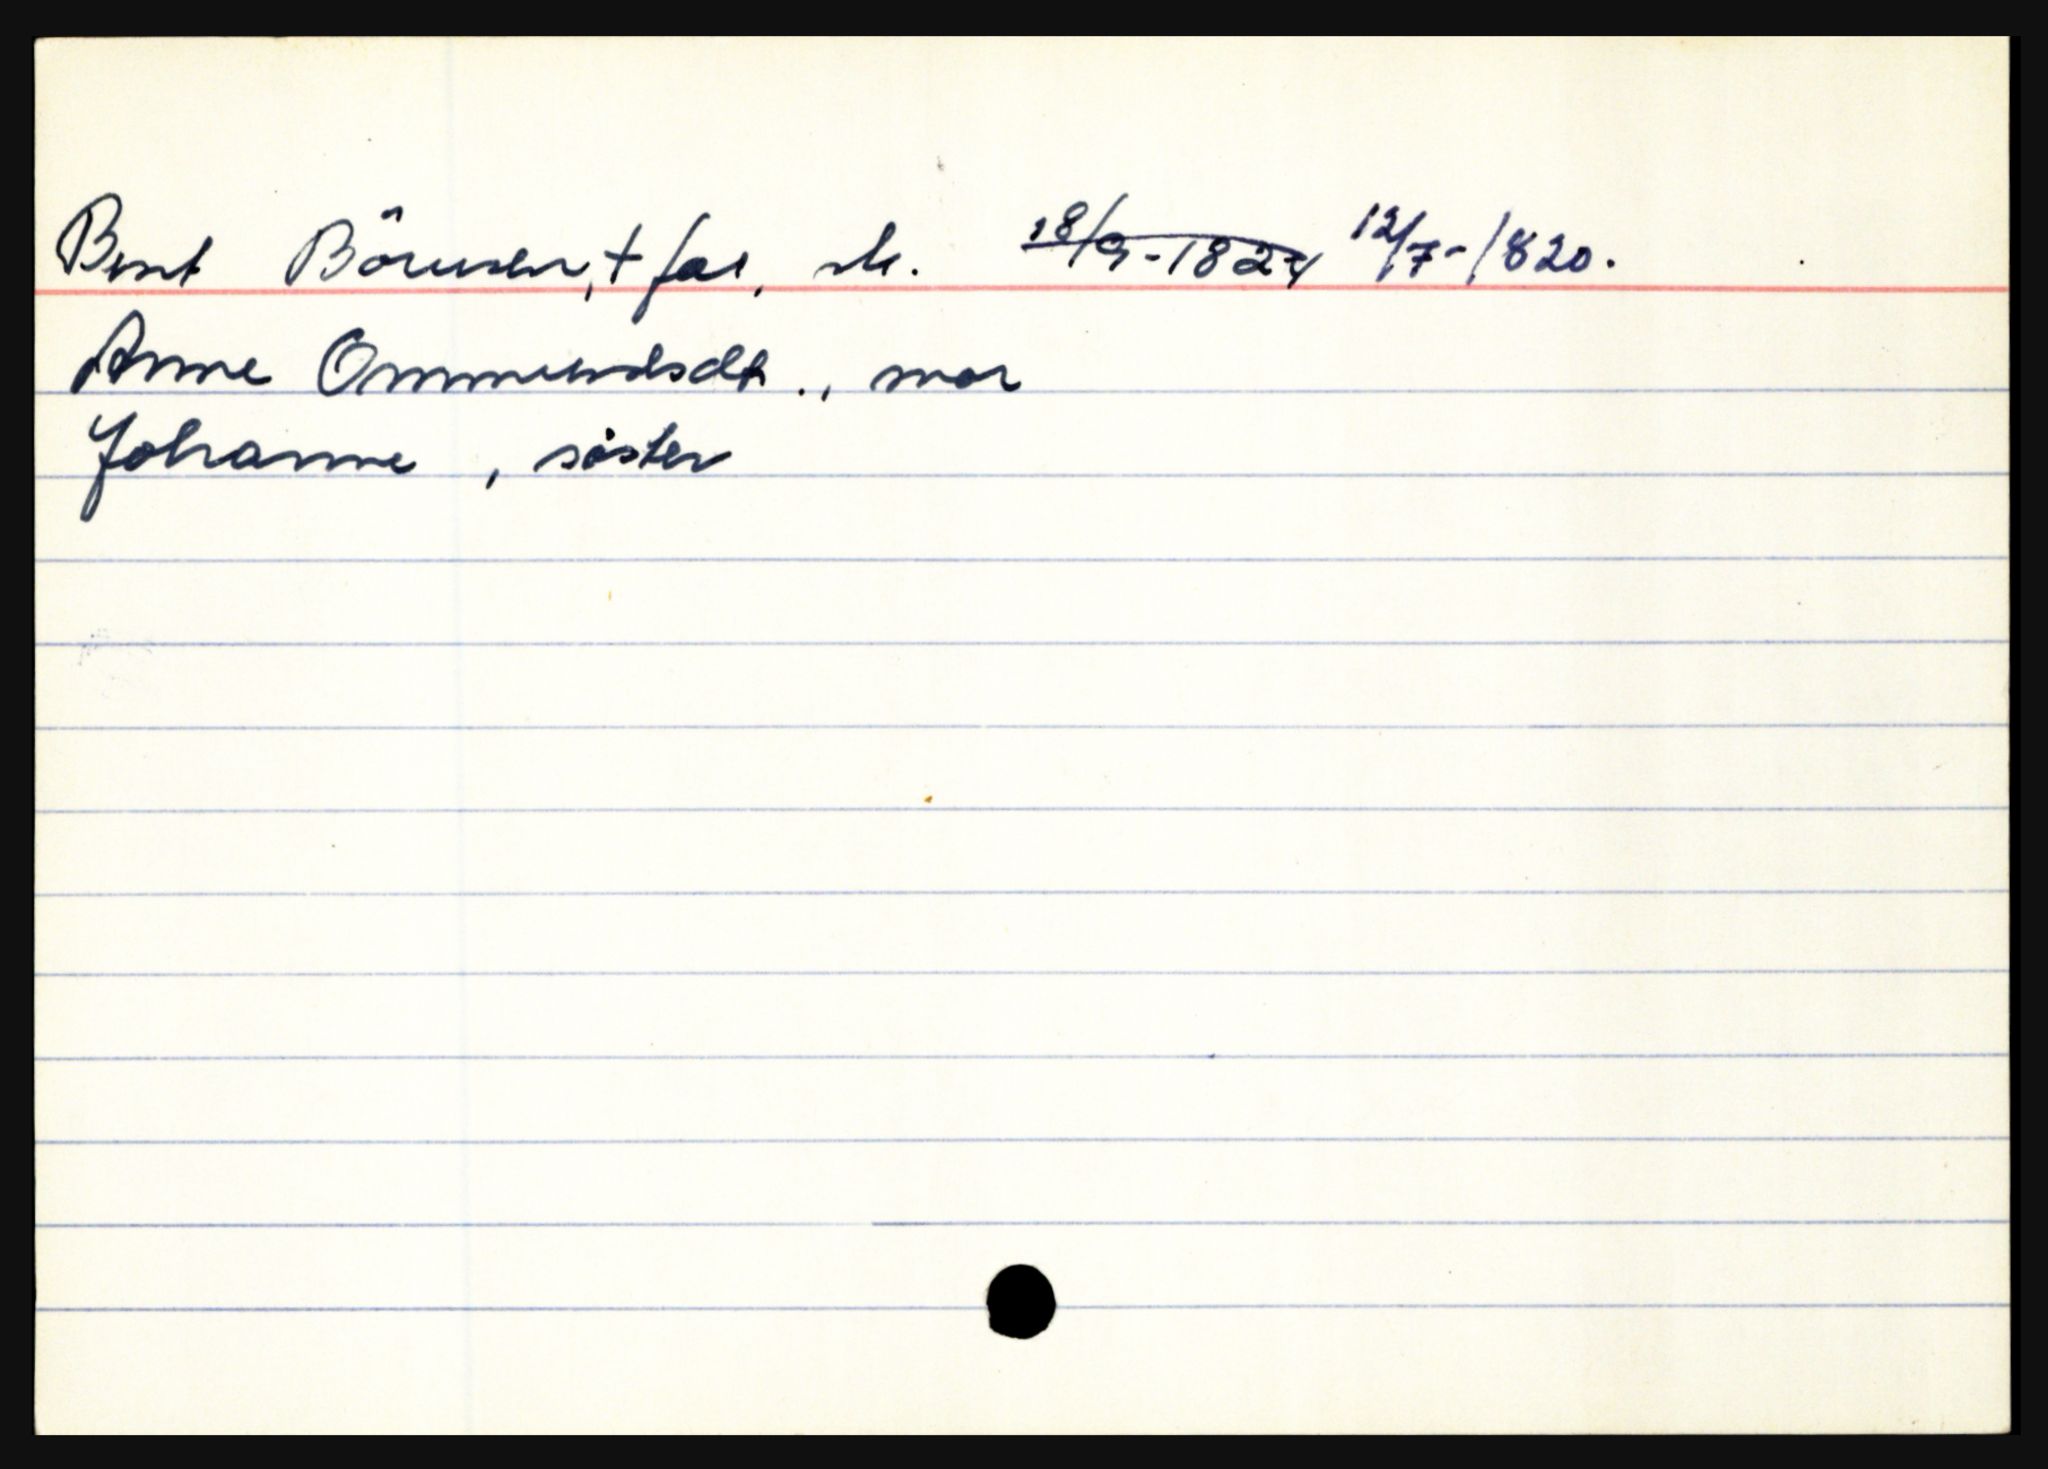 Bent Börresen, + far, sk. 18/9-1824 12/7-1820.
Anne Ommundsdtr., mor
Johanne, søster